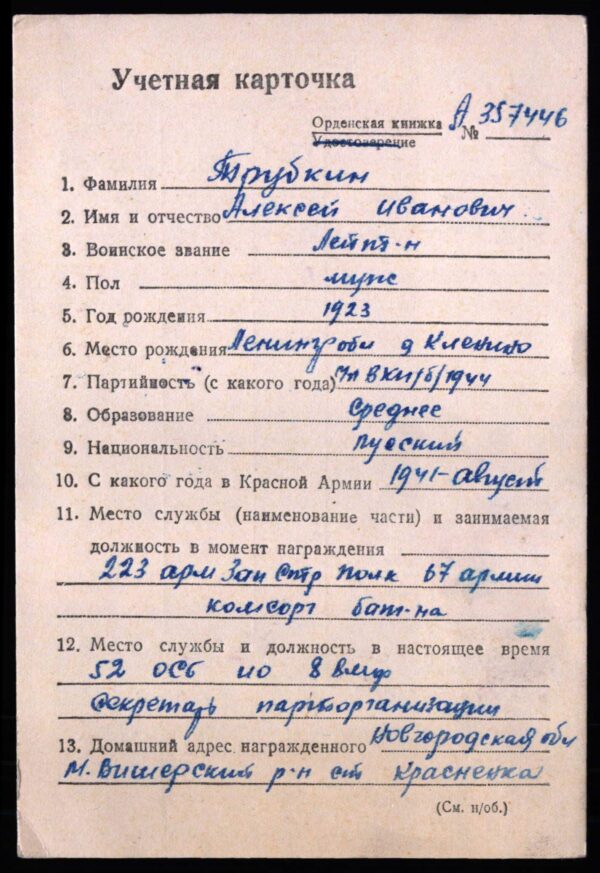 Учетная карточка
Орденская книжка А 357446
Удостоверение №
1. Фамилия Трубкин
2. Имя и отчество Алексей Иванович
3. Воинское звание Лейт-н
4. Пол муж
5. Год рождения 1923
6. Место рождения Ленингр обл д
7. Партийность (с какого года) Чл ВКП/б/1944
8. Образование Среднее
9. Национальность русский
10. С какого года в Красной Армии 1941-август
11. Место службы (наименование части) и занимаемая
должность в момент награждения
223 арм Зап Стр полк 67 армии
комсорг бат-на
12. Место службы и должность в настоящее время
52 ОСБ 8 вмф
Секретарь парторганизации
13. Домашний адрес награжденного Новгородская обл
М. Вишерский р-н ст Краснецка
(См. н/об.)